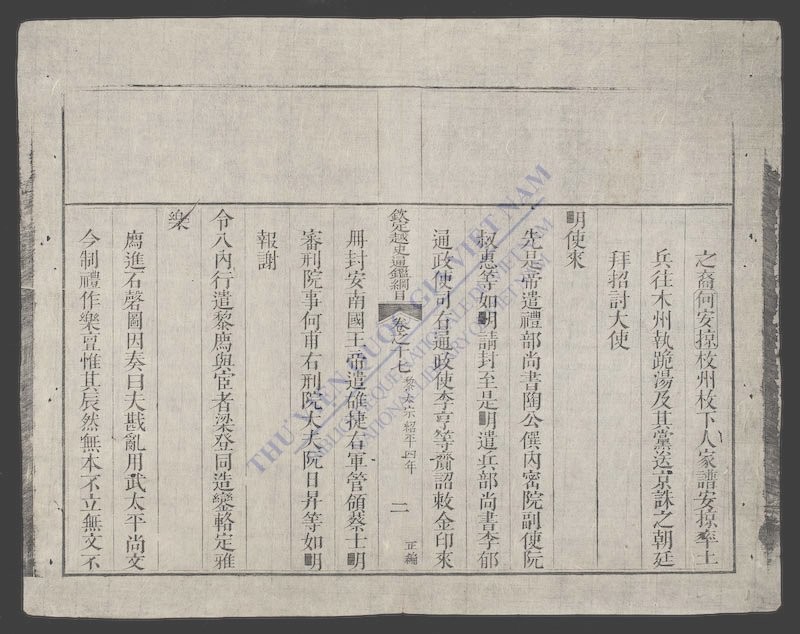 之裔何安掠枚州枚下人家譜安掠率土
兵往木州執跪湯及其黨送京誅之朝廷
拜招討大使
明使來
先是帝遣禮部尚書陶公僎內密院副使阮
叔惠等如明請封至是明遣兵部尚書李郁
通政使司右通政使李亨等齎詔敕金印來
欽定越史通鑑綱目 卷之十七 黎太宗紹平四年 二 正編
冊封安南國王帝遣雄捷右軍管領蔡士明
審刑院事何甫右刑院大夫阮日昇等如明
報謝
令入內行遣黎廌與宦者梁登同造鑾輅定雅
樂
廌進石磬圖因奏曰夫戡亂用武太平尚文
今制禮作樂亶惟其辰然無本不立無文不
THƯ VIỆN QUỐC GIA VIỆT NAM
BIBLIOTHÈQUE NATIONALE DU VIETNAM
NATIONAL LIBRARY OF VIETNAM